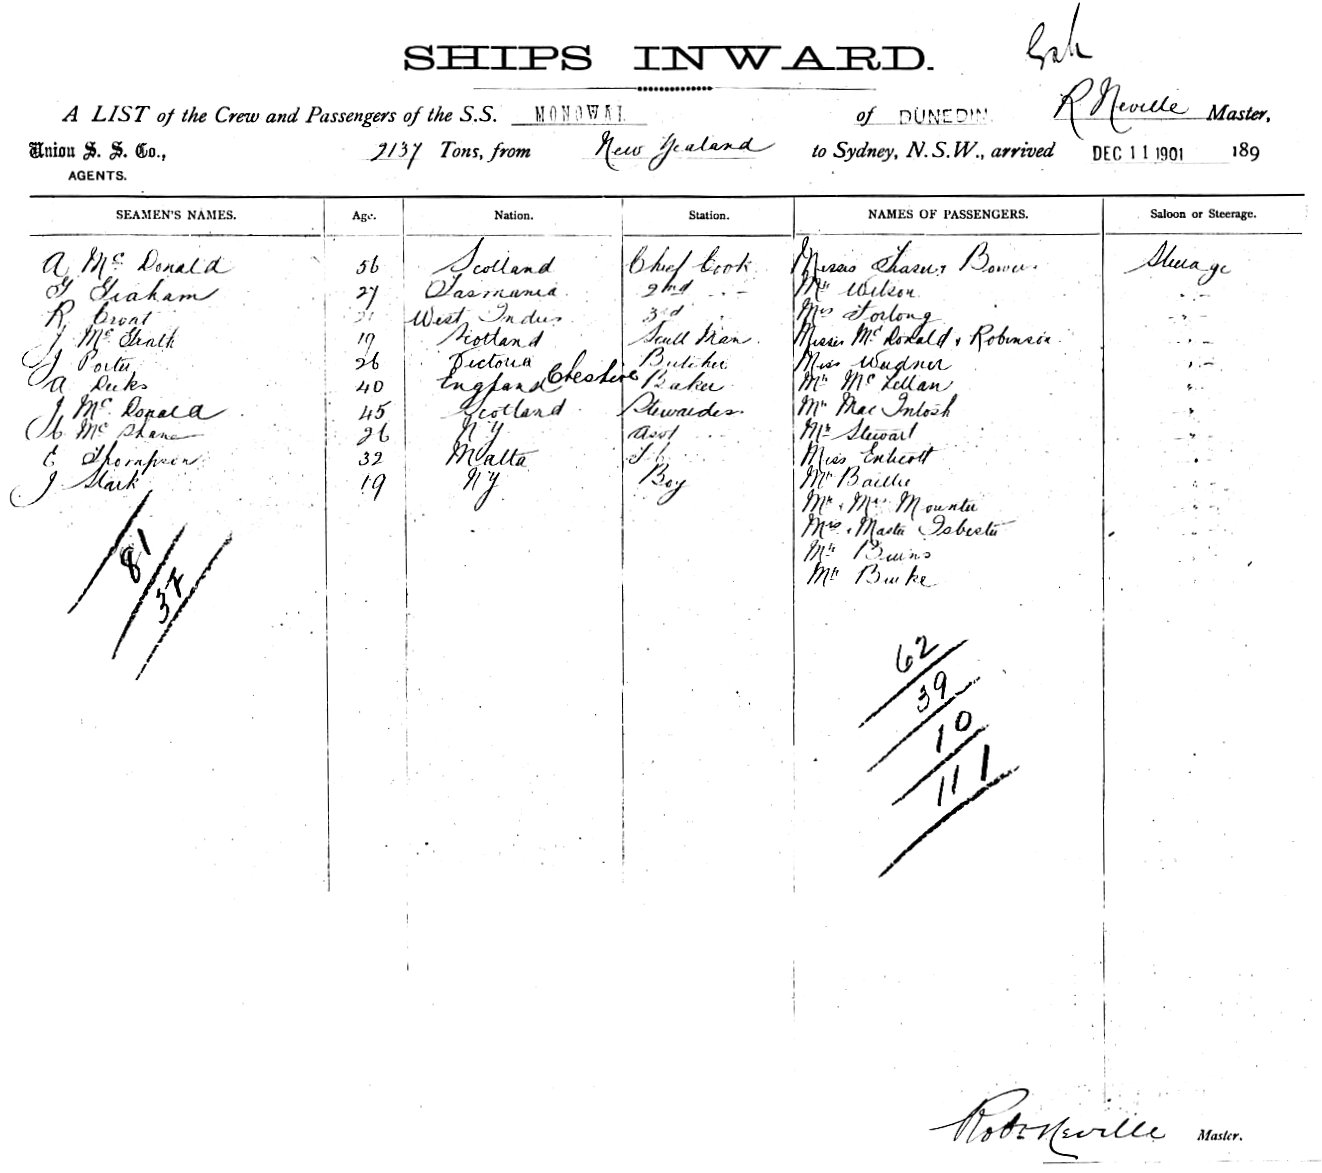 SHIPS INWARD.
A LIST of the Crew and Passengers of the S.S. MONOWAI of DUNEDIN. R Neville Master,
Union S. S. Co., 2137 Tons, from New Zealand to Sydney, N.S.W., arrived DEC 11 1901 189
AGENTS.
SEAMEN'S NAMES. Age. Nation. Station. NAMES OF PASSENGERS. Saloon or Steerage.
A McDonald 56 Scotland Chief Cook Messrs Fraser & Bower Steerage
G Graham 27 Tasmania 2nd " Mr Wilson "
R 21 West Indies 3rd Mrs Forlong "
J McGrath 19 Scotland Scull Man Misses McDonald & Robinson "
J Porter 26 Victoria Butcher Miss Weidner "
A Deeks 40 England Cheshire Baker Mr McLellan "
J McDonald 45 Scotland Stewardess Mr MacIntosh "
McShane 26 NZ Asst Mr Stewart "
E Thompson 32 Malta Miss Endicott "
J Stark 19 NZ Boy Mr Baillie "
Mr & Mrs Mounter "
Mrs & Master Isbister "
Mr Burns "
Mr Burke "
81
37
62
39
10
111
Robt Neville Master.